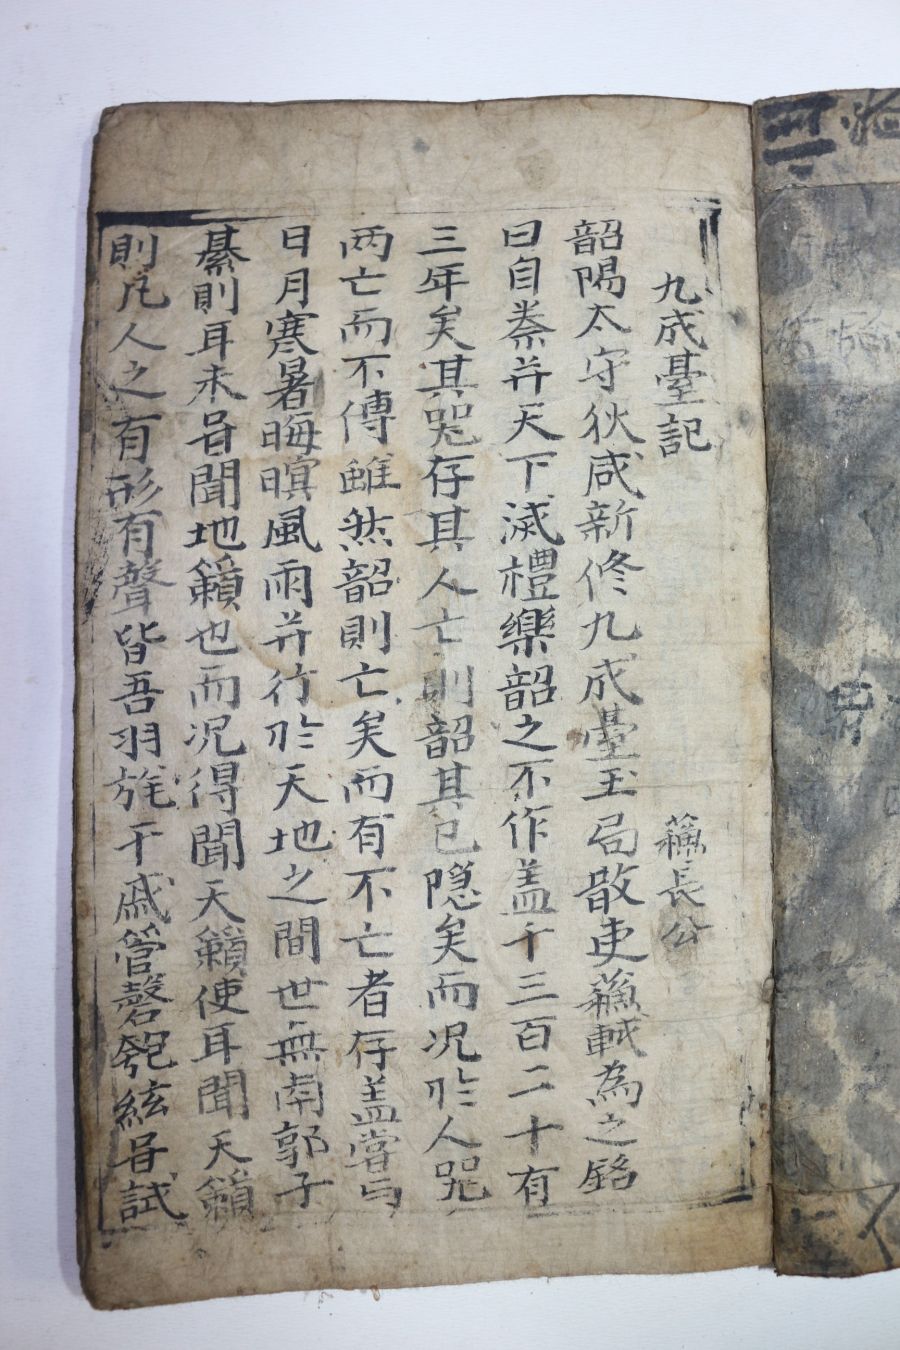 九成臺記 蘓長公
韶陽太守狄咸新修九成臺玉局散吏蘓軾為之銘
曰自秦并天下滅禮樂韶之不作盖千三百二十有
三年矣其器存其人亡則韶其已隠矣而况扵人器
两亡而不傳雖然韶則亡矣而有不亡者存盖嘗与
日月寒暑晦暝風雨并行扵天地之間世無南郭子
綦則耳未甞聞地籟也而况得聞天籟使耳聞天籟
則凡人之有形有聲皆吾羽旄干戚管磬匏絃甞試